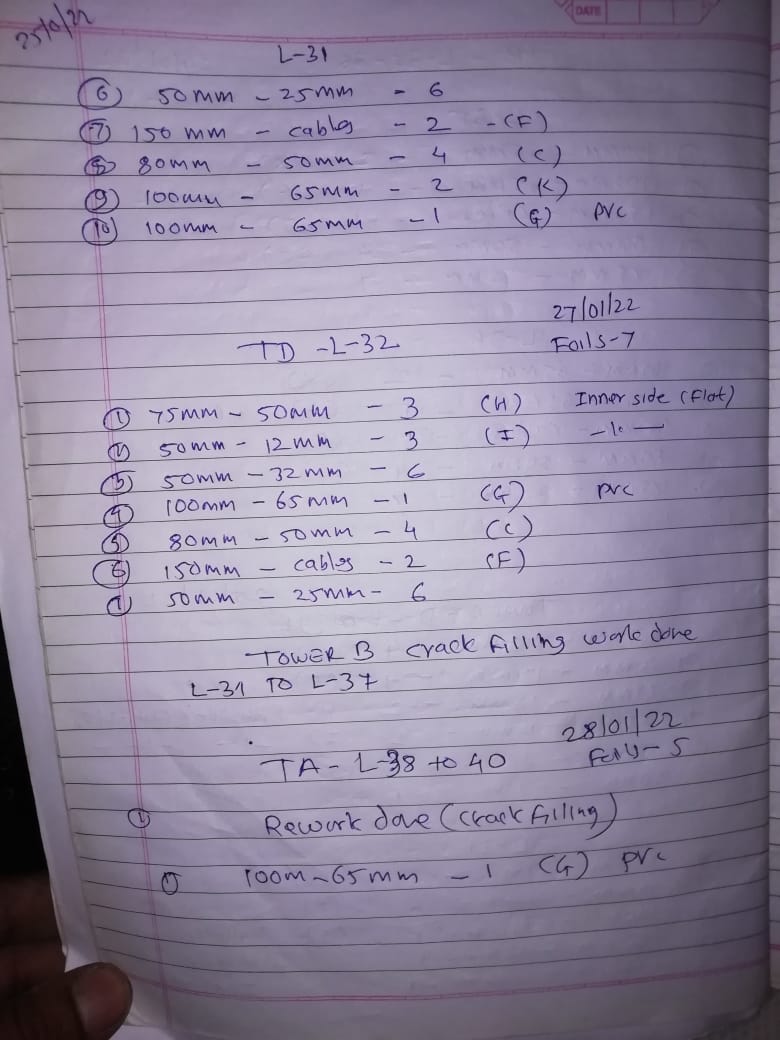 DATE
L-31
(6) 50mm - 25mm - 6
(7) 150mm - cables - 2 - (F)
(8) 80mm - 50mm - 4 (C)
(9) 100mm - 65mm - 2 (K)
(10) 100mm - 65mm - 1 (G) PVC
27/01/22
TD - L-32
(1) 75mm - 50mm - 3 (H) Inner side (Flat)
(2) 50mm - 12mm - 3 (I)
(3) 50mm - 32mm - 6
(4) 100mm - 65mm - 1 (G) PVC
(5) 80mm - 50mm - 4 (C)
(6) 150mm - cables - 2 (F)
(7) 50mm - 25mm - 6
TOWER B crack filling work done
L-31 TO L-37
28/01/22
TA - L-38 to 40
(1) Rework done (crack filling)
(1) 100m - 65mm - 1 (G) PVC